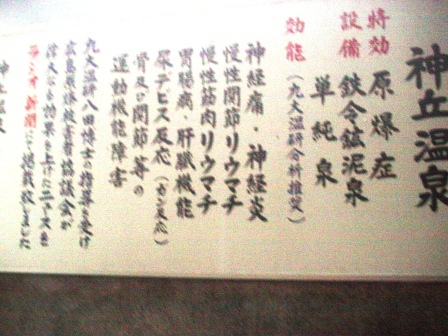 神丘温泉
特効 原爆症
設備 鉄令鉱泥泉
単純泉
効能（九大温研分科推奨）
神経痛・神経炎
慢性関節リウマチ
慢性筋肉リウマチ
胃腸病・肝臓機能
尿デビス反応（ガン反応）
骨及び関節等の
運動機能障害
九大温研八田博士の指導を受け
広島県原爆被害者協議会が
効果を上げたニュースを
ラジオ新聞にて掲載致しました
神丘温泉